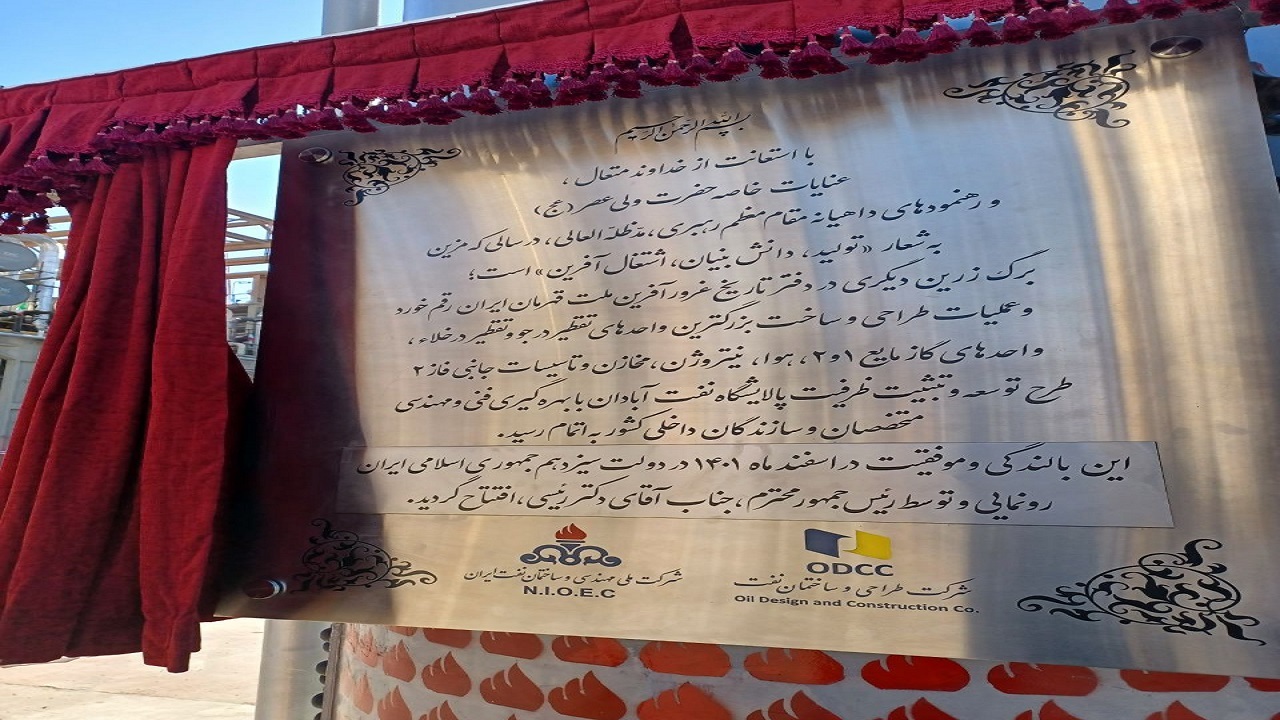 بسم الله الرحمن الرحیم
با استعانت از خداوند متعال ،
عنایات خاصه حضرت ولی عصر (عج)
و رهنمودهای داهیانه مقام معظم رهبری ، مدّظلّه العالی ، در سالی که مزین
به شعار «تولید، دانش بنیان، اشتغال آفرین» است؛
برگ زرین دیگری در دفتر تاریخ غرور آفرین ملت قهرمان ایران رقم خورد
و عملیات طراحی و ساخت بزرگترین واحدهای تقطیر در جو و تقطیر در خلاء ،
واحدهای گاز مایع ۱و۲، هوا، نیتروژن، مخازن و تاسیسات جانبی فاز ۲
طرح توسعه و تثبیت ظرفیت پالایشگاه نفت آبادان با بهره گیری فنی و مهندسی
متخصصان و سازندگان داخلی کشور به اتمام رسید.
این بالندگی و موفقیت در اسفند ماه ۱۴۰۱ در دولت سیزدهم جمهوری اسلامی ایران
رونمایی و توسط رئیس جمهور محترم ، جناب آقای دکتر رئیسی ، افتتاح گردید.
شرکت ملی مهندسی و ساختمان نفت ایران
N.I.O.E.C
ODCC
شرکت طراحی و ساختمان نفت
Oil Design and Construction Co.